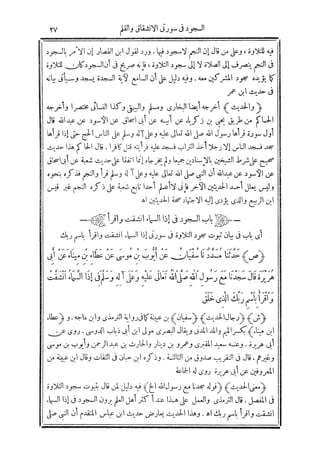 السجود فى سورتى الانشقاق والقلم ٢٧
فيه للتلاوة، وعلى من قال إن النجم لاسجود فيها. ورد لقول ابن القصار إن الأمر بالسجود
فى النجم ينصرف إلى الصلاة لا إلى سجود التلاوة، فإنه صريح فى أن السجود كان للتلاوة
كما يؤيده سجود المشركين معه. وفيه دليل على أن السامع لآية السجدة يسجد وسيأتى بيانه
فى حديث ابن عمر
﴿والحديث﴾ أخرجه أيضا البخارى ومسلم والبيهقى وكذا النسائى مختصرا وأخرجه
الحاكم من طريق يحيى بن زكريا عن أبيه عن أبى إسحاق عن الأسود عن عبد الله قال
أول سورة قرأها رسول الله صلى الله تعالى عليه وعلى آله وسلم على الناس الحج حتى إذا قرأها
سجد فسجد الناس إلا رجل أخذ التراب فسجد عليه فرأيته قتل كافرا. قال الحاكم هذا حديث
صحيح على شرط الشيخين بالإسنادين جميعا ولم يخرجاه إنما اتفقا على حديث شعبة عن أبى إسحاق
عن الأسود عن عبد الله أن النبى صلى الله تعالى عليه وعلى آله وسلم قرأ والنجم فذكره بنحوه
وليس يعلل أحد الحديثين الآخر فإنى لا أعلم أحدا تابع شعبة على ذكره النجم غير قيس
ابن الربيع والذى يؤدى إليه الاجتهاد صحة الحديثين اه
باب السجود فى إذا السماء انشقت واقرأ
أى باب فى بيان ثبوت سجود التلاوة فى سورتى إذا السماء انشقت واقرأ باسم ربك
﴿ص﴾ حَدَّثَنَا مُسَدَّدٌ نَا سُفْيَانُ عَنْ أَيُّوبَ بْنِ مُوسَى عَنْ عَطَاءِ بْنِ مِينَاءَ عَنْ أَبِى
هُرَيْرَةَ قَالَ سَجَدْنَا مَعَ رَسُولِ اللهِ صَلَّى اللهُ تَعَالَى عَلَيْهِ وَعَلَى آلِهِ وَسَلَّمَ فِى إِذَا السَّمَاءُ انْشَقَّتْ
وَاقْرَأْ بِاسْمِ رَبِّكَ الَّذِى خَلَقَ
﴿ش﴾ ﴿رجال الحديث﴾ ﴿سفيان﴾ بن عيينة كما فى رواية الترمذى وابن ماجه. و﴿عطاء
ابن ميناء﴾ بكسر الميم والمد المدنى ويقال البصرى مولى ابن أبى ذباب الدوسى. روى عن
أبى هريرة. وعنه سعيد المقبرى وعمرو بن دينار والحارث بن عبد الرحمن وأيوب بن موسى
وغيرهم. قال فى التقريب صدوق من الثالثة. وذكره ابن حبان فى الثقات وقال ابن عيينة من
المعروفين عن أبى هريرة روى له الجماعة
﴿معنى الحديث﴾ ﴿قوله سجدنا مع رسول الله الخ﴾ فيه دليل لمن قال بثبوت سجود التلاوة
فى المفصل. قال الترمذى والعمل على هذا عند أكثر أهل العلم يرون السجود فى إذا السماء
انشقت واقرأ باسم ربك اه. وهذا الحديث يعارض حديث ابن عباس المتقدم أن النبى صلى